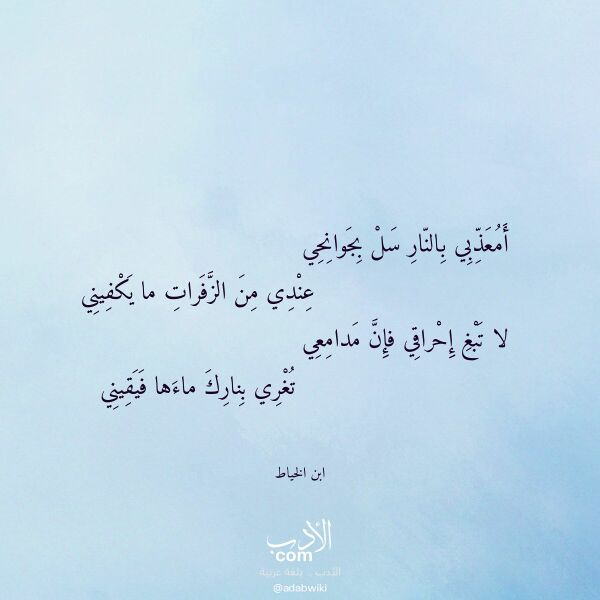 أَمُعَذِّبِي بِالنّارِ سَلْ بِجَوانِحِي
عِنْدِي مِنَ الزَّفَراتِ ما يَكْفِينِي
لا تَبْغِ إِحْراقِي فَإِنَّ مَدامِعِي
تُغْرِي بِنارِكَ ماءَها فَيَقِينِي
ابن الخياط
الأدب
com
الأدب .. بلغة عربية
@adabwiki